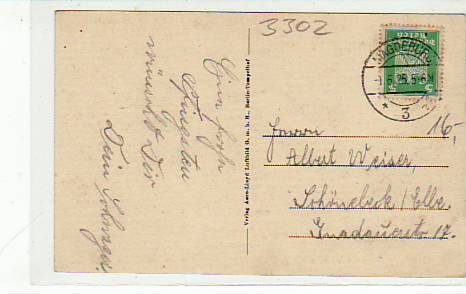 3302
Ein froh
Pfingsten
wünscht Dir
Dein Schwager.
Verlag Aero-Lloyd Luftbild G. m. b. H., Berlin-Tempelhof
MAGDEBURG
25.5-6N
* 3
16,-
Herrn
Albert Weiser,
Schönebeck/Elbe.
17.